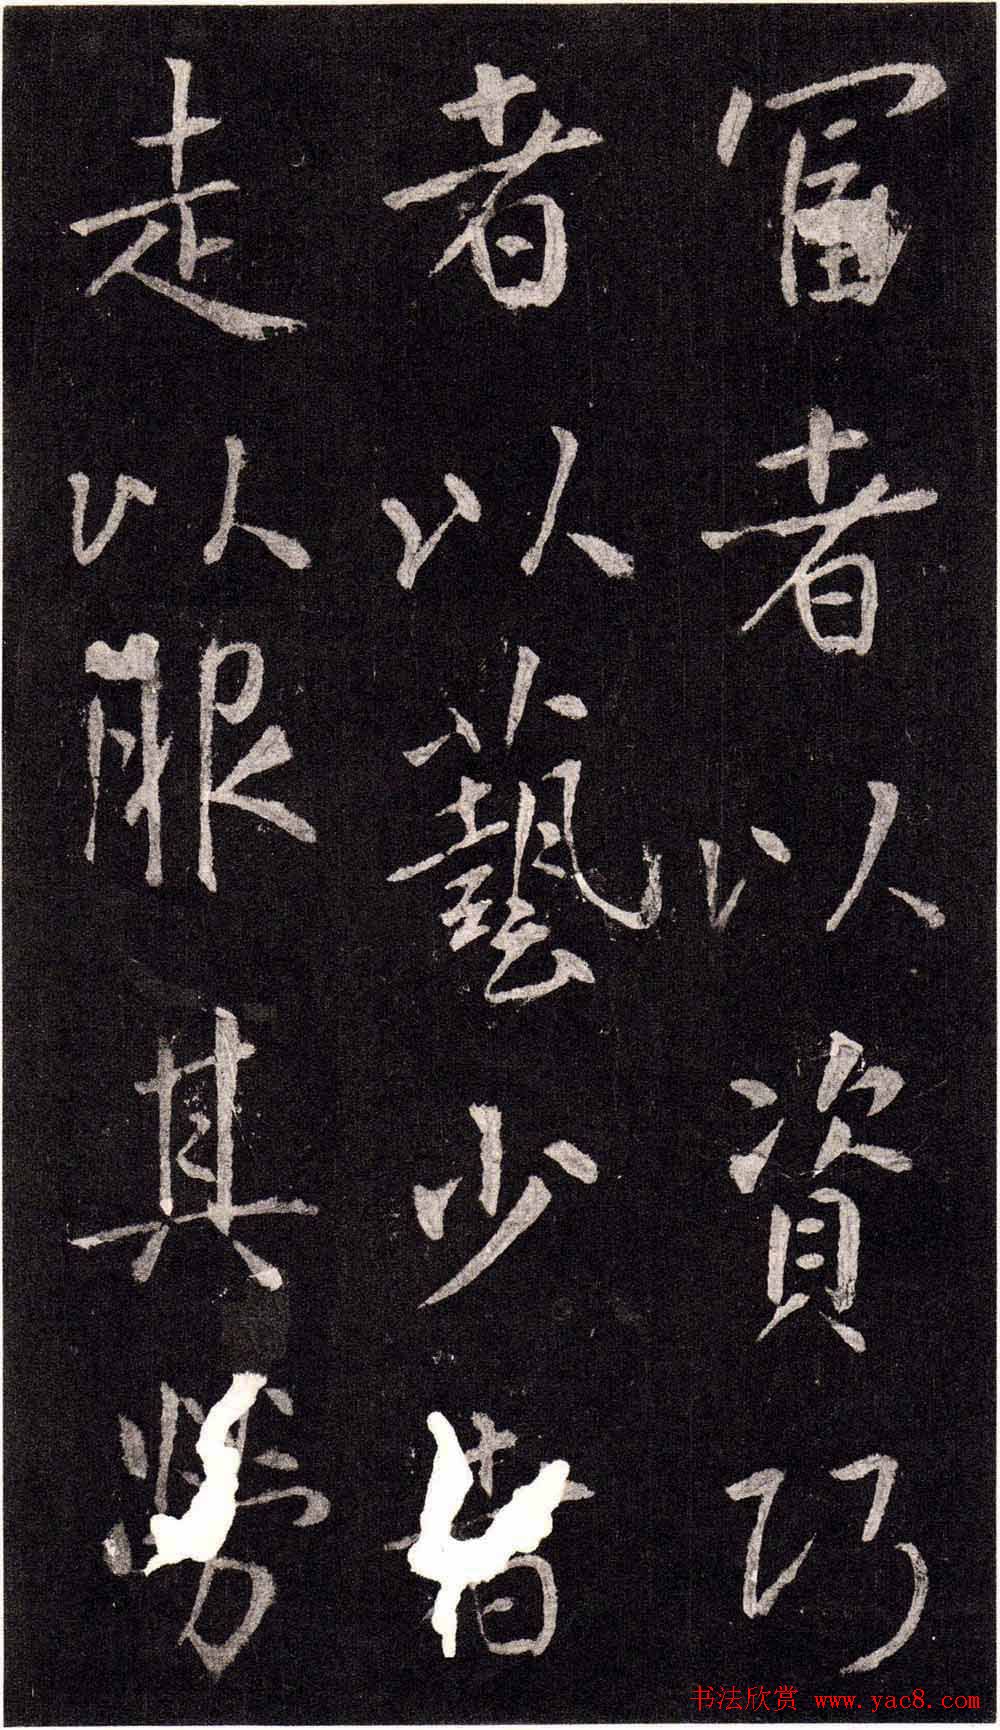 富者以資巧
者以藝少者
走以服其勞
书法欣赏 www.yac8.com